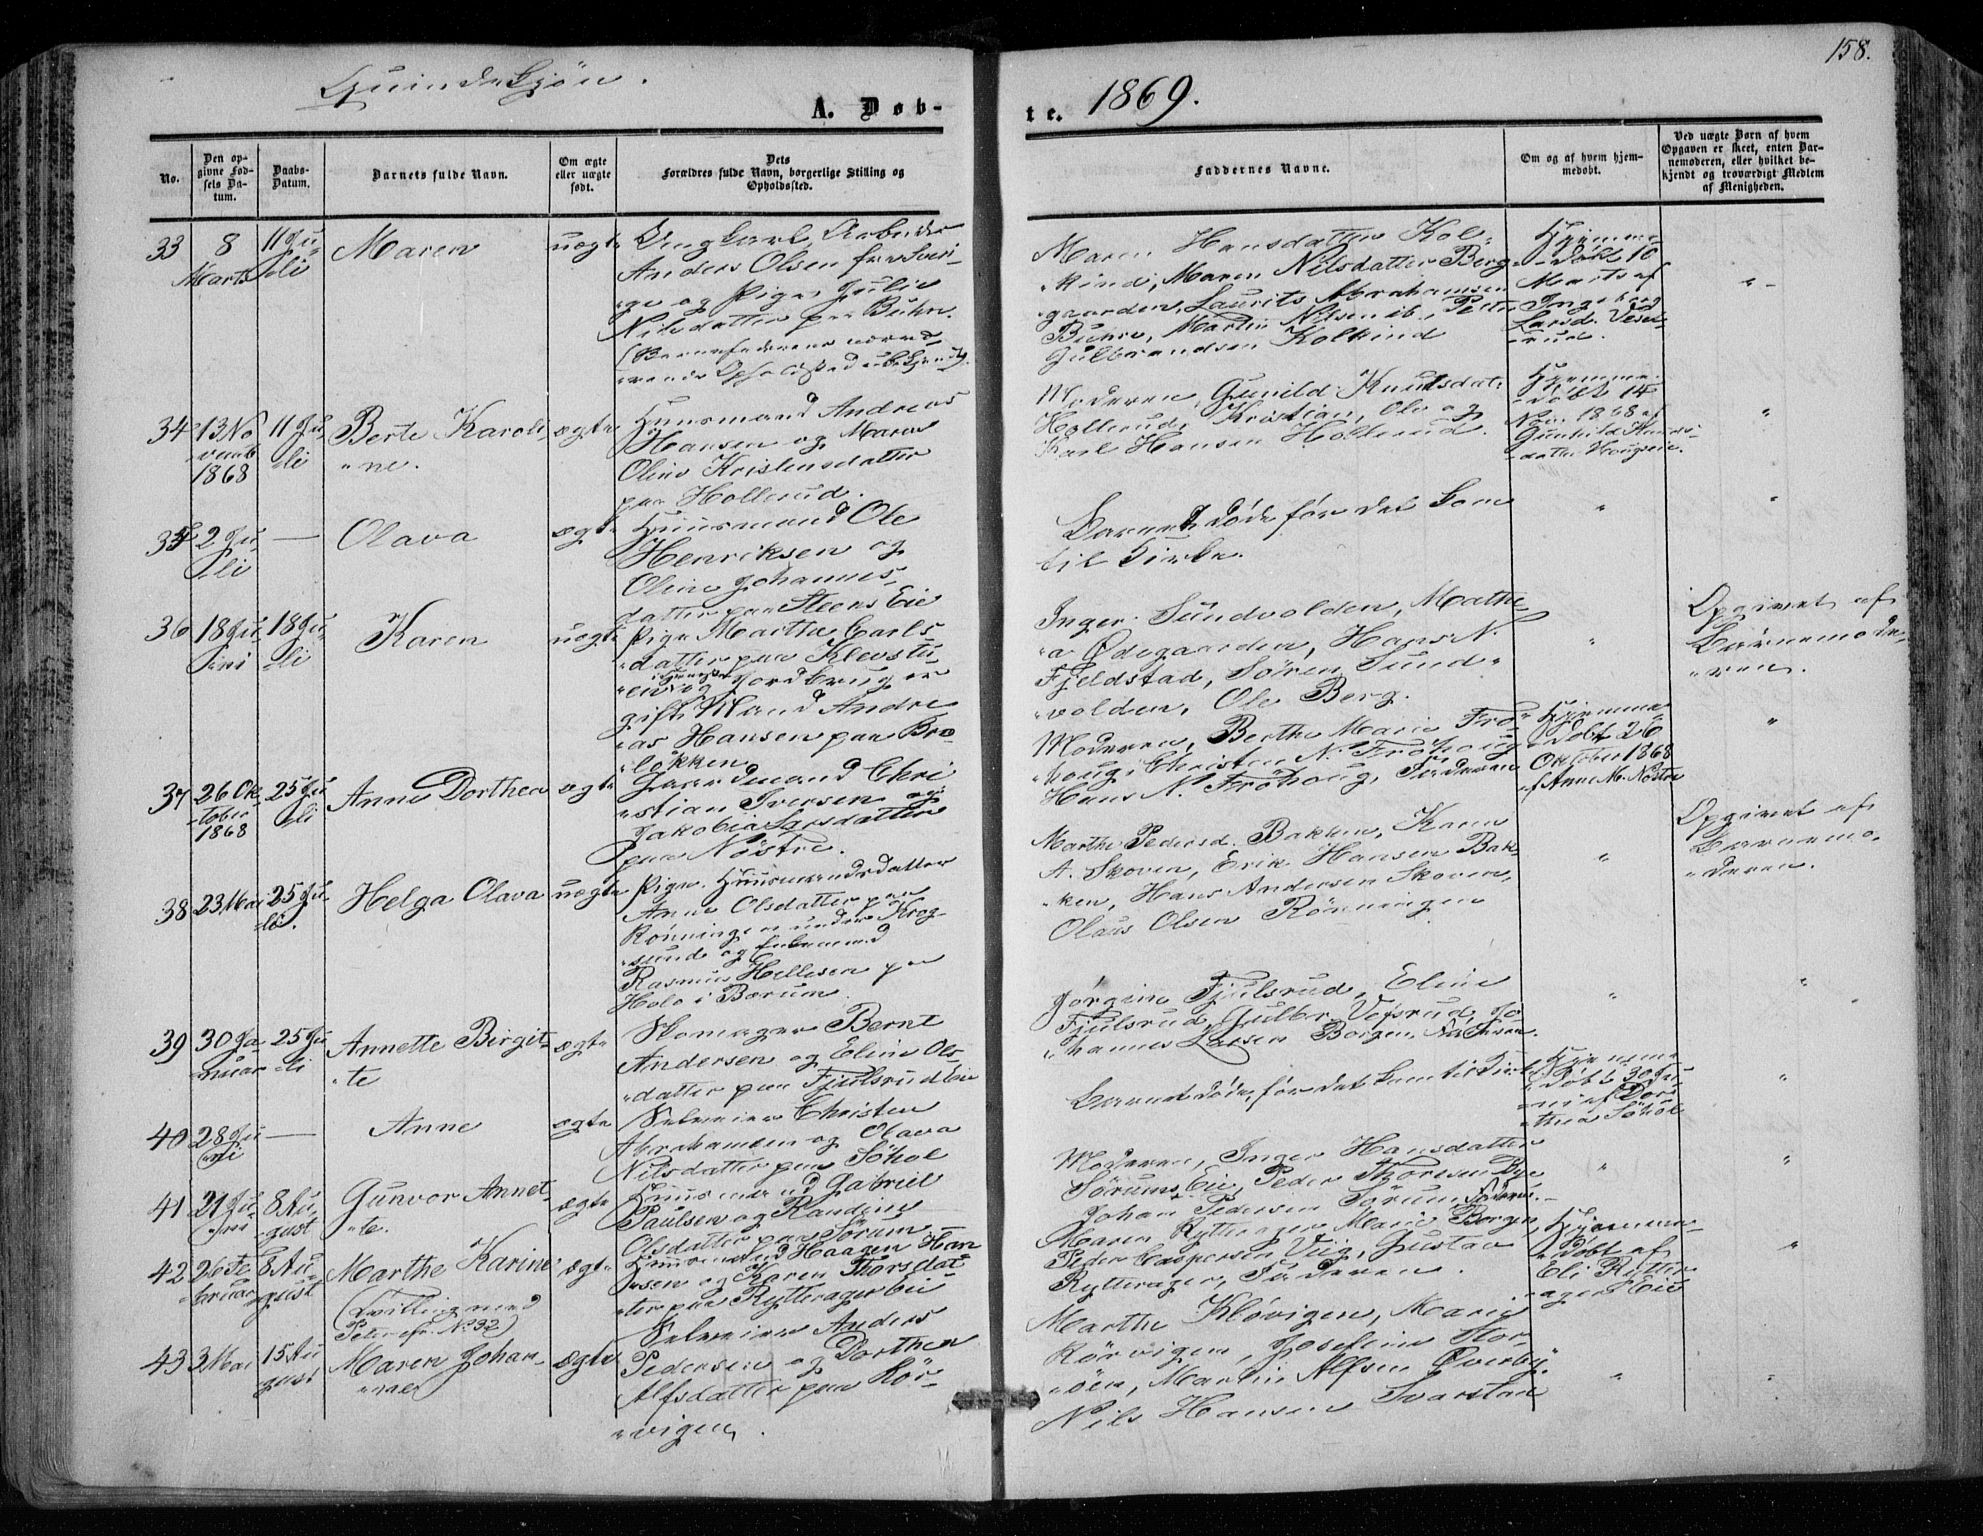 158.
Quindekjøn.
A. Døb-
te. 1869.
No.
Den op-
givne Fød-
sels Da-
tum.
Daabs-
Datum.
Barnets fulde Navn.
Om ægte
eller uægte
født.
Dets
Forældres fulde Navn, borgerlige Stilling og
Opholdssted.
Faddernes Navne.
Om og af hvem hjem-
medøbt.
Ved uægte Børn af hvem
Opgaven er skeet, enten Bar-
nemoderen, eller hvilket be-
kjendt og troværdigt Medlem
af Menigheden.
33
8
Marts
11 Ju-
li
Maren
uægte
Ungkarl, Arbeider
Anders Olsen fra Sveri-
ge og Pige Julie
Nilsdatter paa Buhre
(Barnefaderens nærvæ-
rende Opholdssted ubekjendt).
Maren Hansdatter Kol-
kind, Maren Nilsdatter Berg-
gaarden, Laurits Abrahamsen
Buhre, Martin Nilsen ib., Petter
Gulbrandsen Kolkind
Hjemme-
døbt 10
Marts af
Ingeborg
Larsd. Vesel-
rud.
34
13 No-
vemb
1868
11 Ju-
li
Berte Karoli-
ne.
ægte
Huusmand Andreas
Hansen og Maren
Oline Kristensdatter
paa Hollerud.
Moderen, Gunild Knudsdat.
Hollerud, Kristian, Ole og
Karl Hansen Hollerud.
Hjemme-
døbt 14
Nov. 1868 af
Gunhild Knuds-
datter
35
2 Ju-
li
—
Olava
ægte
Huusmand Ole
Henriksen og
Oline Johannes-
datter paa Steens Eie
Barnet døde før det kom
til Kirke.
36
18 Ju-
ni
18 Ju-
li
Karen
uægte
Pige Marthe Carls-
datter paa Klevstu-
en og Jordbruger
gift Mand Andre-
as Hansen paa Bra-
løkken
Inger Sundvolden, Mathe-
a Ødegaarden, Hans N.
Fjeldstad, Søren Sund-
volden, Ole Berg.
Opgivet af
Barnemode-
ren.
37
26 Ok-
tober
1868
25 Ju-
li
Anne Dorthea
ægte
Gaardmand Chri-
stian Iversen og
Jakobia Larsdatter
paa Nøstre.
Moderen, Berthe Marie Frø-
houg, Christen N. Frøhoug
Hans N. Frøhoug, Faderen
Hjemme-
døbt 26
Oktober 1868
af Anne M. Nøstre
38
23 Mai
25 Ju-
li.
Helga Olava
uægte
Pige, Huusmandsdatter
Anne Olsdatter paa
Rønningen under Krog-
sund og Enkemand
Rasmus Hellesen paa
Holo i Bærum
Marthe Pedersd. Bakken, Karen
A. Skoven, Erik Hansen Bak-
ken, Hans Andersen Skoven,
Olaus Olsen Rønningen
Opgivet af
Barnemo-
deren.
39
30 Ja-
nuar
25 Ju-
li
Annette Birgit-
te
ægte
Skomager Bernt
Andersen og Eline Ols-
datter paa Fjulsrud Eie
Jørgine Fjulsrud, Eline
Fjulsrud, Gulbr. Vefsrud, Jo-
hannes Larsen Borgen, Faderen.
40
28 Ju-
ni
—
Anne
ægte
Selveier Christen
Abrahamsen og Olava
Nilsdatter paa Søhol
Barnet døde, før det kom til Kirke
Hjemme-
døbt 30 Ju-
ni af Dor-
thea Søhol
41
21 Ju-
ni
8 Au-
gust
Gunvor Annet-
te.
ægte
Huusmand Gabriel
Paulsen og Randine
Olsdatter paa Sørum
Moderen, Inger Hansdatter
Sørums Eie, Peder Thoresen Bye
Johan Pedersen Sørum, Faderen.
42
26 Fe-
bruar
8 Au-
gust
Marthe Karine
(Tvilling med
Peter cfr. No. 32)
ægte
Huusmand Haagen Han-
sen og Karen Thorsdat-
ter paa Rytterager Eie
Maren Rytterager, Marie Borgen,
Peder Caspersen Viig, Gustav
Rytterager, Faderen.
Hjemme-
døbt af
Eli Rytter-
ager Eie
43
3 Mai
15 Au-
gust
Maren Johan-
ne
ægte
Selveier Anders
Pedersen og Dorthea
Alfsdatter paa Rør-
vigen.
Marthe Kløvigen, Marie
Rørvigen, Josefine Stor-
øen, Martin Alfsen Øverby,
Nils Hansen Svarstad